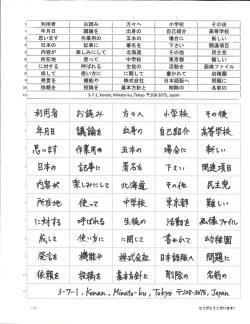 利用者 お読み 方々へ 小学校 その後
年月日 議論を 出身の 自己紹介 高等学校
思います 作業用の 五本の 場合に 新しい
日本の 記事に 署名を 下さい 関連項目
内容が 楽しみにして 北海道 その他 民主党
所在地 使って 中学校 東京都 難しい
に対する 呼ばれる 生徒の 活動を 画像ファイル
成して 使い方に に関して 書かれて 幼稚園
発言を 機能や 株式会社 日本語版 問題に
依頼を 投稿を 基本方針と 削除の 名前の
3-7-1, Konan, Minato-ku, Tokyo 〒108-3075, Japan
利用者 お読み 方々へ 小学校 その後
年月日 議論を 出身の 自己紹介 高等学校
思います 作業用の 五本の 場合に 新しい
日本の 記事に 署名を 下さい 関連項目
内容が 楽しみにして 北海道 その他 民主党
所在地 使って 中学校 東京都 難しい
に対する 呼ばれる 生徒の 活動を 画像ファイル
成して 使い方に に関して 書かれて 幼稚園
発言を 機能や 株式会社 日本語版 問題に
依頼を 投稿を 基本方針と 削除の 名前の
3-7-1, Konan, Minato-ku, Tokyo 〒108-3075, Japan
ありがとうございます!